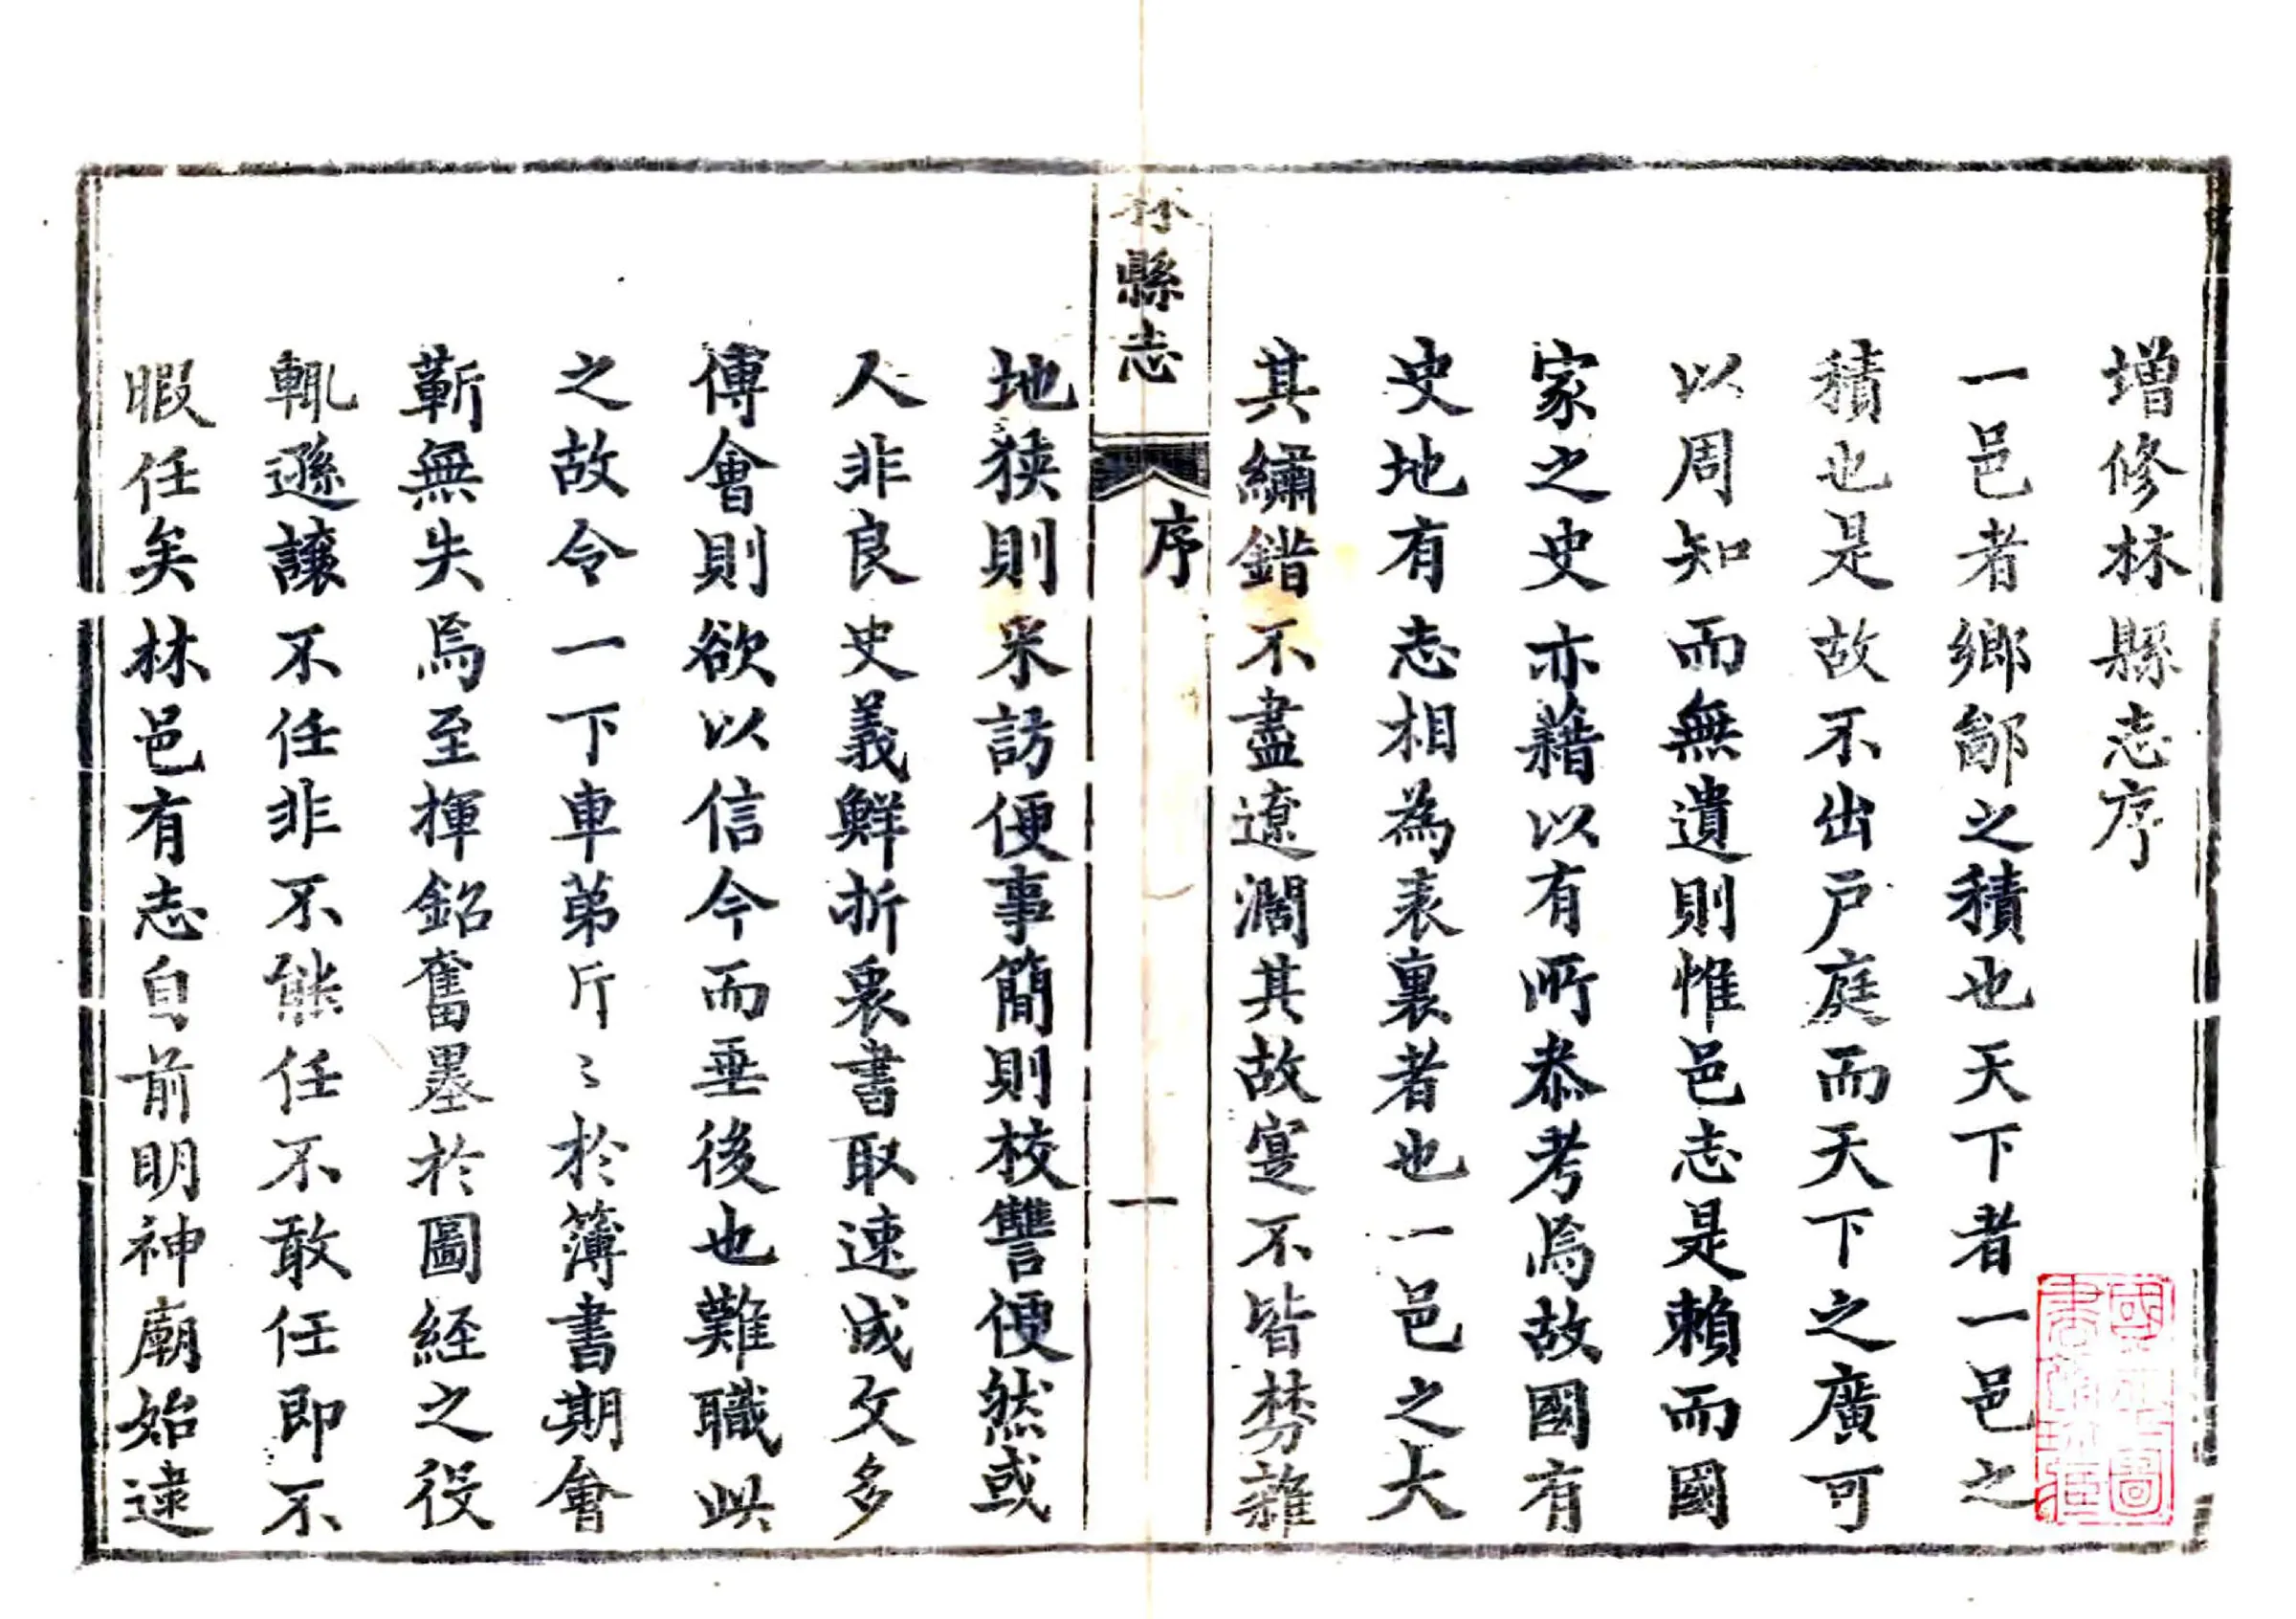 增修林縣志序
一邑者鄉鄙之積也天下者一邑之
積也是故不出户庭而天下之廣可
以周知而無遺則惟邑志是賴而國
家之史亦藉以有所叅考焉故國有
史地有志相為表裏者也一邑之大
其繡錯不盡遼濶其故寔不皆棼雜
林縣志
序
一
地狹則采訪便事簡則校讐便然或
人非良史義鮮折衷書取速成文多
傅會則欲以信今而垂後也難職此
之故令一下車苐斤〻於簿書期會
蘄無失焉至揮鉊奮墨於圖經之役
輒遜讓不任非不能任不敢任即不
暇任矣林邑有志自前明神廟始逮